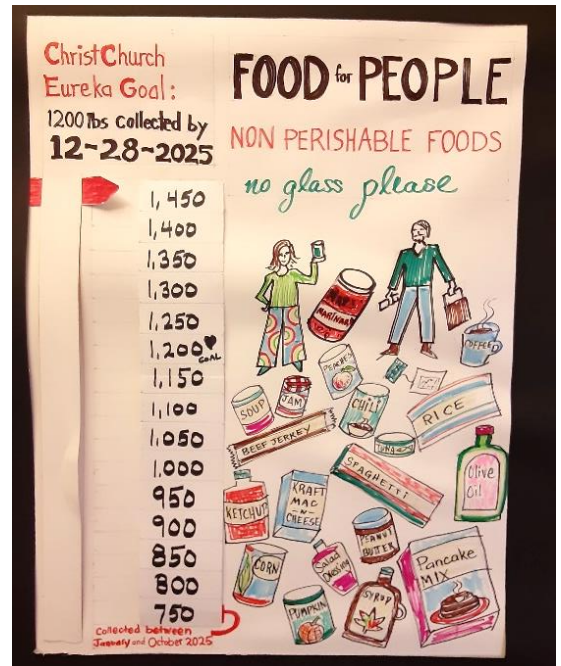 ChristChurch
Eureka Goal:
1200 lbs collected by
12-28-2025
FOOD for PEOPLE
NON PERISHABLE FOODS
no glass please
1,450
1,400
1,350
1,300
1,250
1,200
GOAL
1,150
1,100
1,050
1,000
950
900
850
800
750
Collected between
January and October 2025
MARINARA
COFFEE
PEACHES
SOUP
JAM
CHILI
RICE
BEEF JERKEY
TUNA
SPAGHETTI
Olive
Oil
KETCHUP
KRAFT
MAC
-N-
CHEESE
PEANUT
BUTTER
CORN
Salad
Dressing
Pancake
MIX
PUMPKIN
SYRUP